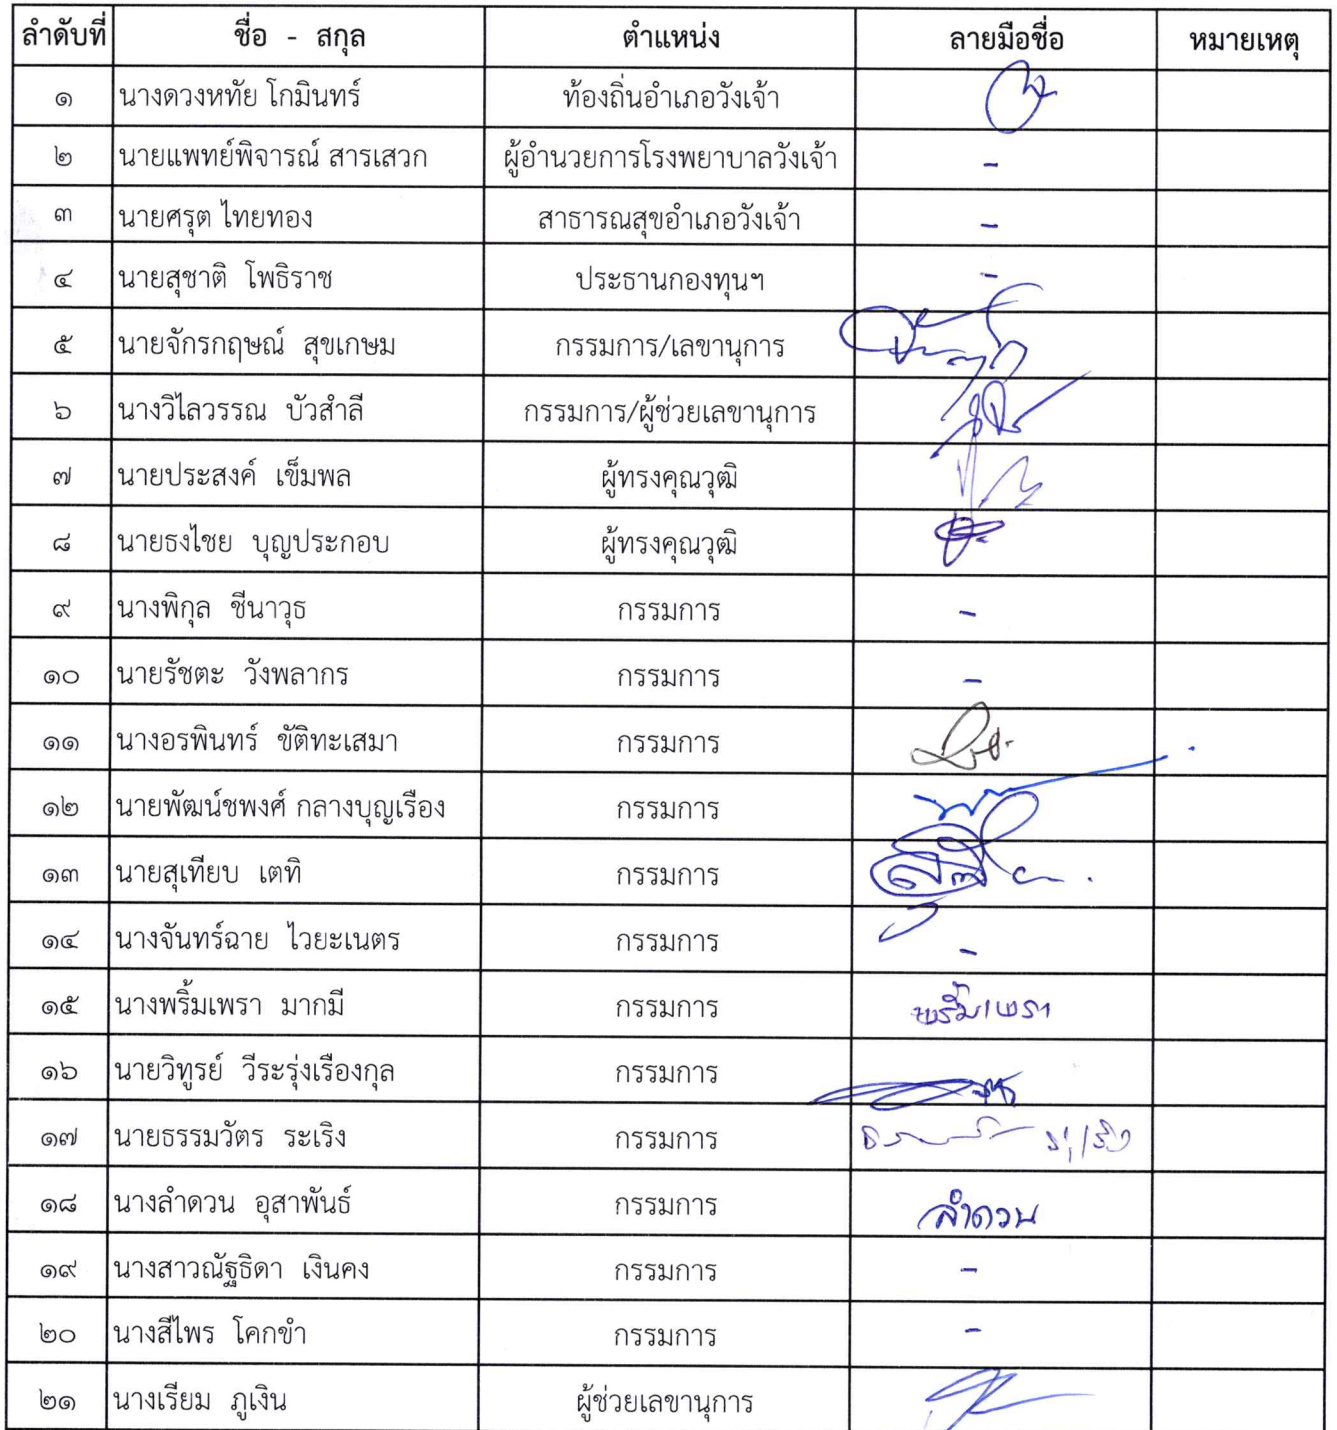 ลำดับที่ ชื่อ - สกุล ตำแหน่ง ลายมือชื่อ หมายเหตุ
๑ นางดวงหทัย โกมินทร์ ท้องถิ่นอำเภอวังเจ้า
๒ นายแพทย์พิจารณ์ สารเสวก ผู้อำนวยการโรงพยาบาลวังเจ้า -
๓ นายศรุต ไทยทอง สาธารณสุขอำเภอวังเจ้า -
๔ นายสุชาติ โพธิราช ประธานกองทุนฯ -
๕ นายจักรกฤษณ์ สุขเกษม กรรมการ/เลขานุการ
๖ นางวิไลวรรณ บัวสำลี กรรมการ/ผู้ช่วยเลขานุการ
๗ นายประสงค์ เข็มพล ผู้ทรงคุณวุฒิ
๘ นายธงไชย บุญประกอบ ผู้ทรงคุณวุฒิ
๙ นางพิกุล ชีนาวุธ กรรมการ -
๑๐ นายรัชตะ วังพลากร กรรมการ -
๑๑ นางอรพินทร์ ขัติทะเสมา กรรมการ
๑๒ นายพัฒน์ชพงศ์ กลางบุญเรือง กรรมการ
๑๓ นายสุเทียบ เตทิ กรรมการ
๑๔ นางจันทร์ฉาย ไวยะเนตร กรรมการ -
๑๕ นางพริ้มเพรา มากมี กรรมการ พริ้มเพรา
๑๖ นายวิทูรย์ วีระรุ่งเรืองกุล กรรมการ
๑๗ นายธรรมวัตร ระเริง กรรมการ
๑๘ นางลำดวน อุสาพันธ์ กรรมการ ลำดวน
๑๙ นางสาวณัฐธิดา เงินคง กรรมการ -
๒๐ นางสีไพร โคกขำ กรรมการ -
๒๑ นางเรียม ภูเงิน ผู้ช่วยเลขานุการ